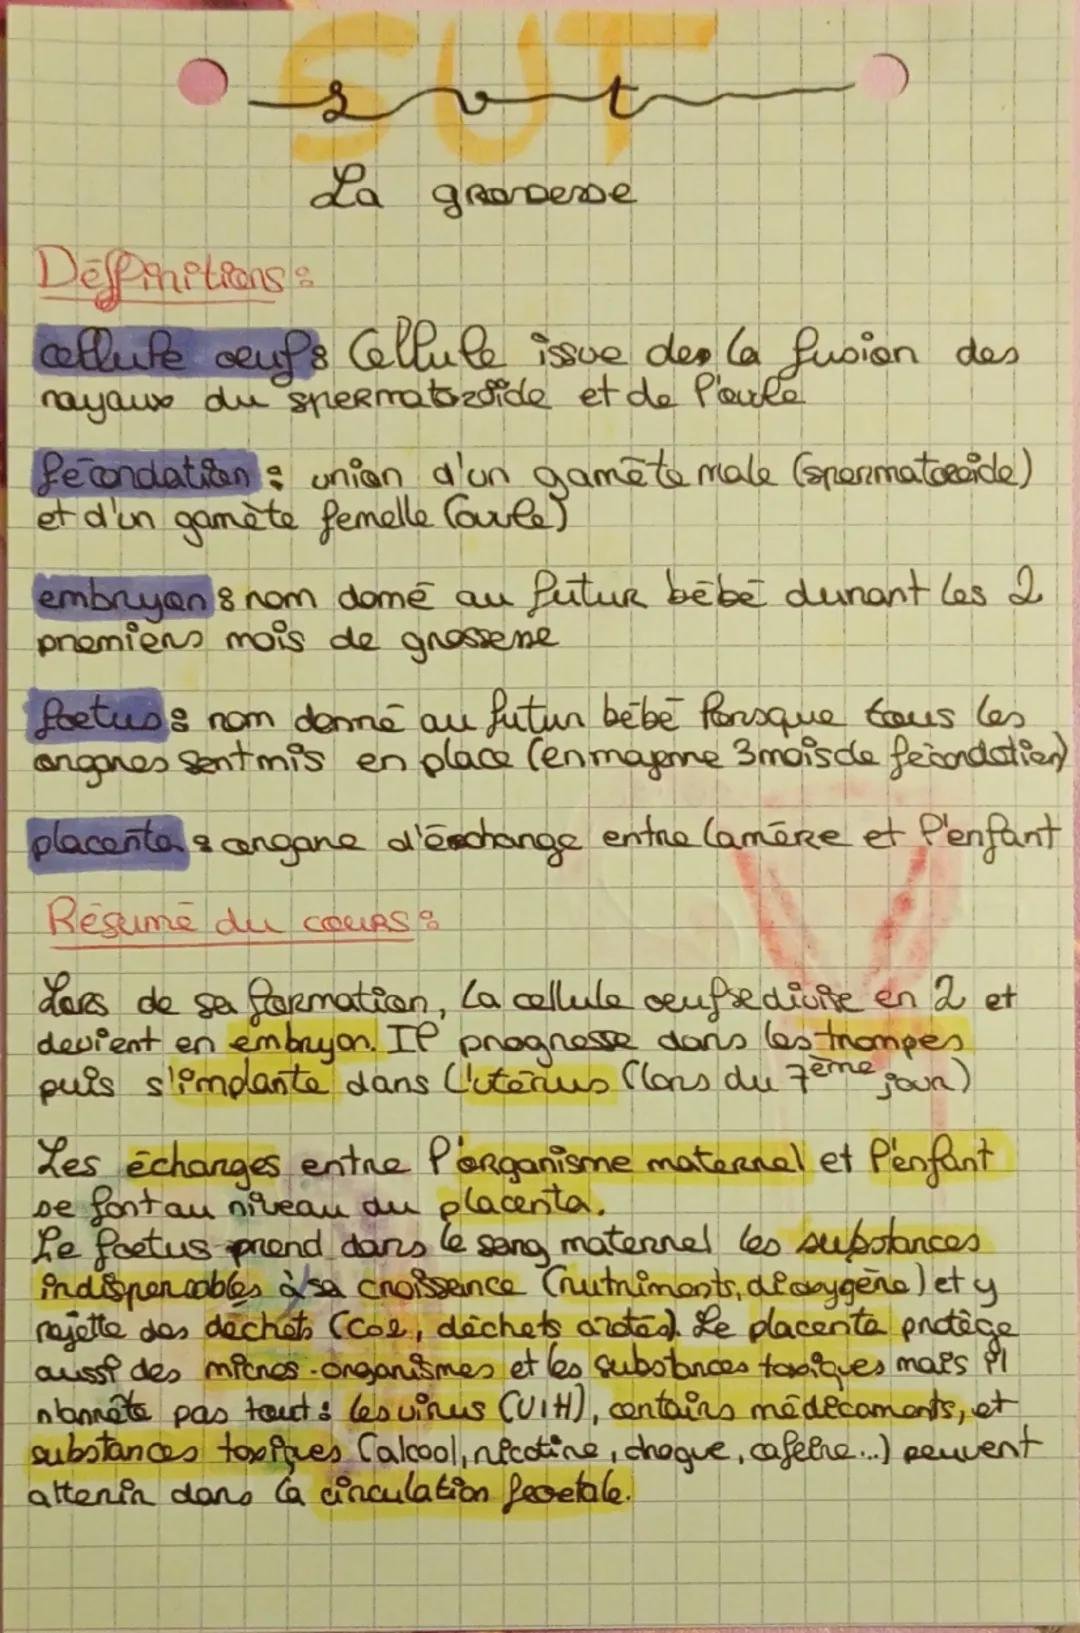 SVT
svt
La grossesse
Déffinitions :
cellule oeuf : Cellule issue des la fusion des
noyaux du spermatozoïde et de l'ovule
fécondation : union d'un gamète male (spermatozoïde)
et d'un gamète femelle (ovule)
embryon : nom donné au futur bébé durant les 2
premiers mois de grossesse
foetus : nom donné au futur bébé lorsque tous les
organes sont mis en place (en moyenne 3 mois de fécondation)
placenta : organe d'échange entre la mère et l'enfant
Résumé du cours :
Lors de sa formation, la cellule oeuf se divise en 2 et
devient en embryon. Il progresse dans les trompes
puis s'implante dans l'utérus (lors du 7ème jour)
Les échanges entre l'organisme maternel et l'enfant
se font au niveau du placenta.
Le foetus prend dans le sang maternel les substances
indispensables à sa croissance (nutriments, dioxygène) et y
rejette des déchets (CO2, déchets azotés). Le placenta protège
aussi des micros-organismes et les substances toxiques mais il
n'arrête pas tout : les virus (VIH), certains médicaments, et
substances toxiques (alcool, nicotine, drogue, caféine...) peuvent
attenir dans la circulation foetale.